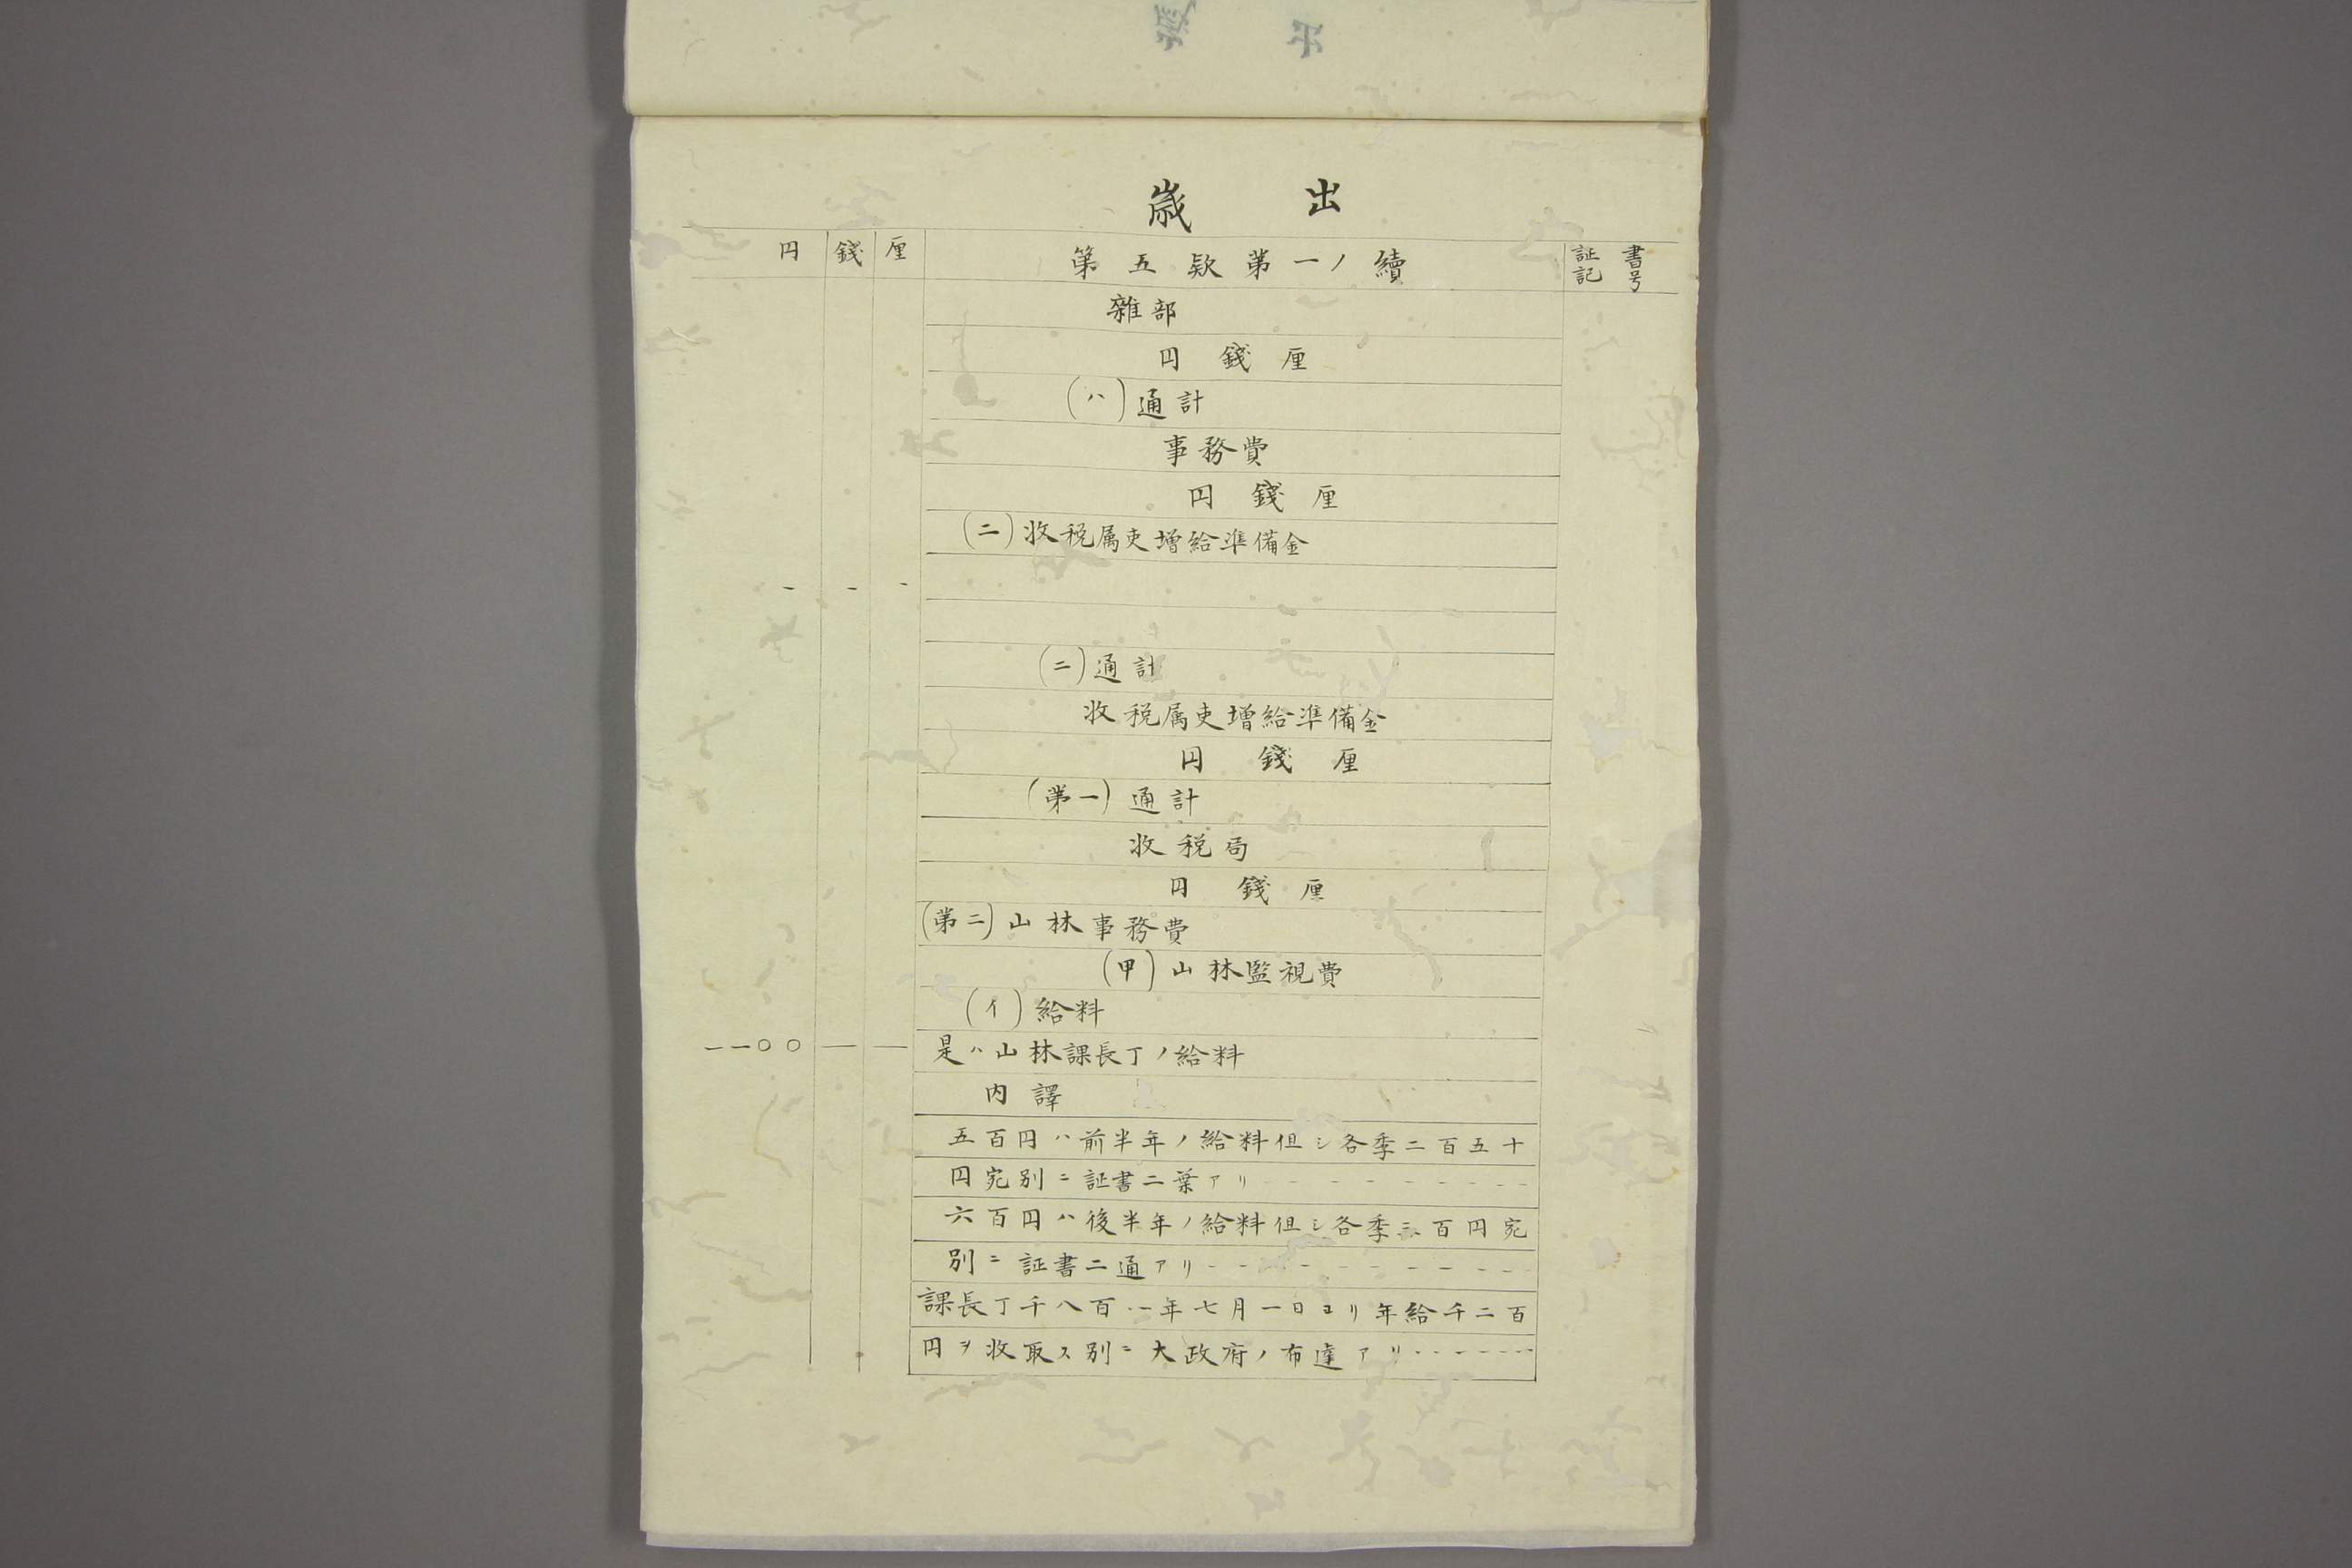 歳出
円 錢 厘 第五欵第一ノ續 証書記号
雜部
円 錢 厘
(ハ)通計
事務費
円 錢 厘
(二)收税属吏増給準備金
- - -
(ニ)通計
收税属吏増給準備金
円 錢 厘
(第一)通計
收税局
円 錢 厘
(第二)山林事務費
(甲)山林監視費
(イ)給料
一一〇〇 — — 是ハ山林課長丁ノ給料
内譯
五百円ハ前半年ノ給料但シ各季二百五十
円宛別ニ証書二葉アリ
六百円ハ後半年ノ給料但シ各季三百円宛
別ニ証書二通アリ
課長丁千八百‥一年七月一日ヨリ年給千二百
円ヲ收取ス別ニ大政府ノ布達アリ